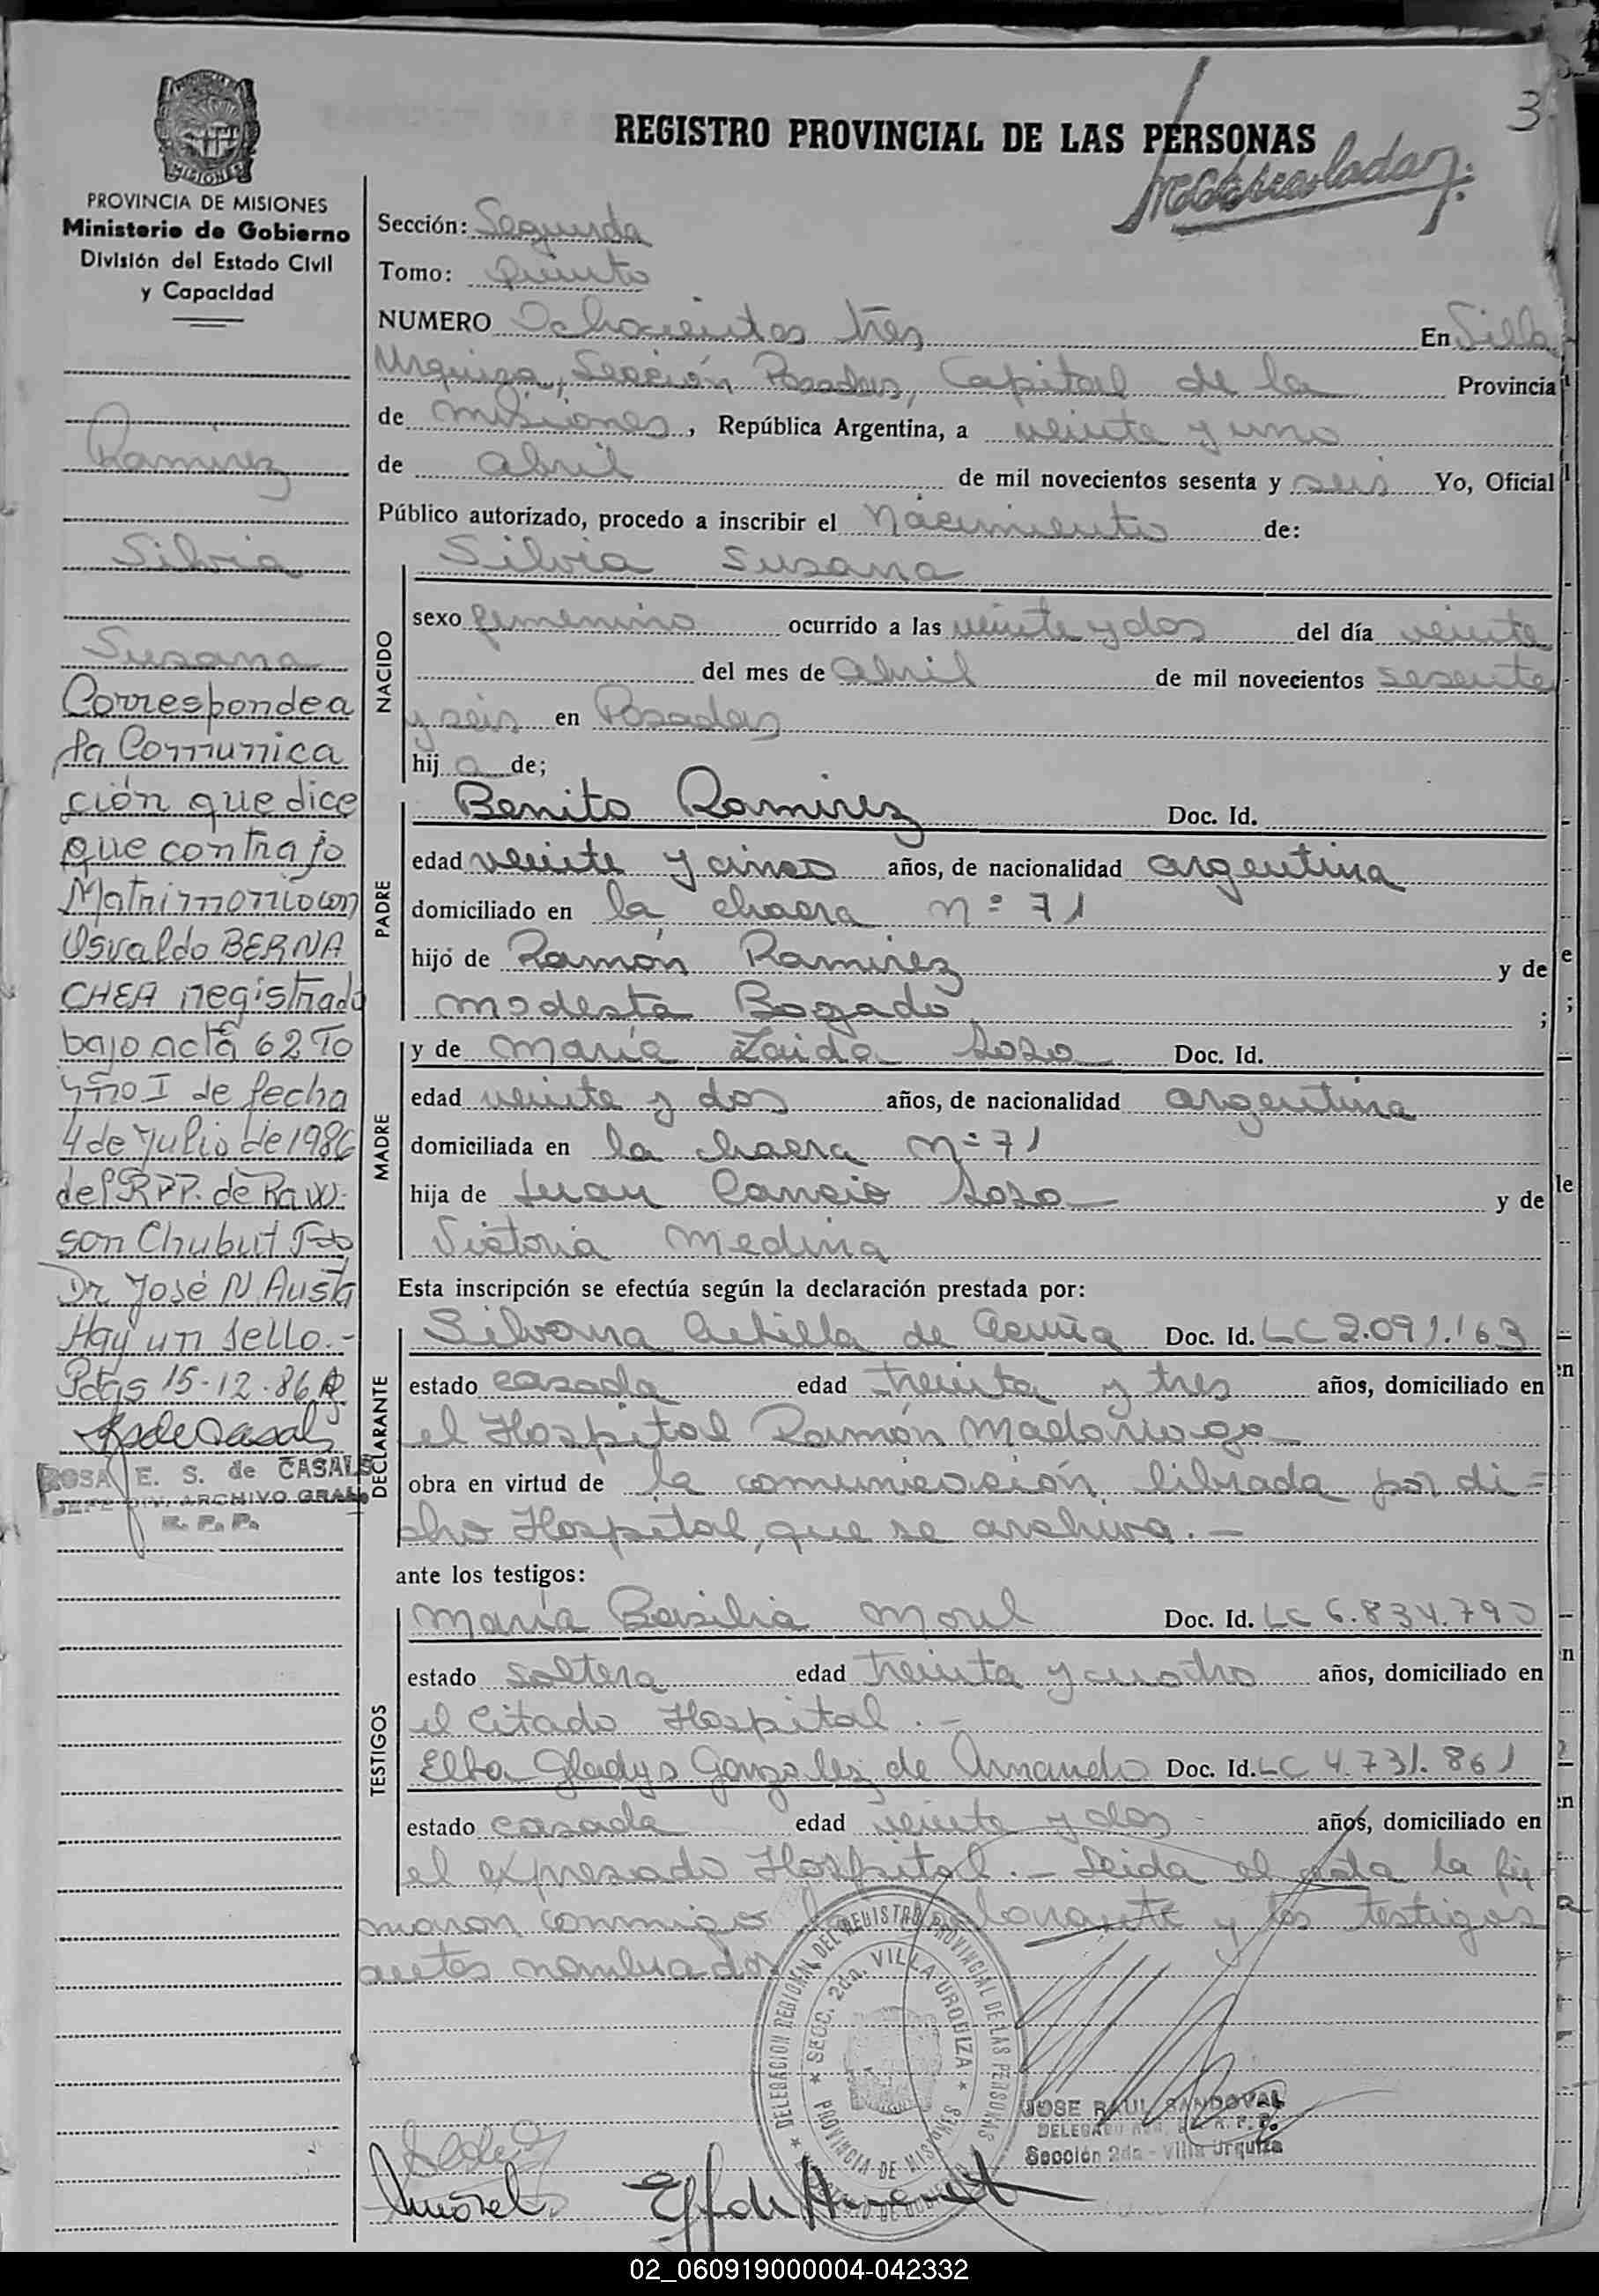 3
REGISTRO PROVINCIAL DE LAS PERSONAS
MISIONES
PROVINCIA DE MISIONES
Ministerio de Gobierno
División del Estado Civil
y Capacidad
Ramirez
Silvia
Susana
Corresponde a
la Comunica
ción que dice
que contrajo
Matrimonio con
Osvaldo BERNA
CHEA registrado
bajo acta 62 To
mo I de fecha
4 de Julio de 1986
del RPP. de Raw
son Chubut
Dr José N. Austi
Hay un sello.-
Pdas 15-12-86
ROSA E. S. de CASALS
JEFE DIV. ARCHIVO GRAL
R. P. P.
Sección: Segunda
Tomo: Quinto
NUMERO Ochocientos tres En Villa
Urquiza, Sección Posadas, Capital de la Provincia
de Misiones, República Argentina, a veinte y uno
de abril de mil novecientos sesenta y seis Yo, Oficial
Público autorizado, procedo a inscribir el Nacimiento de:
NACIDO
Silvia Susana
sexo femenino ocurrido a las veinte y dos del día veinte
del mes de abril de mil novecientos sesenta
y seis en Posadas
hij a de;
PADRE
Benito Ramirez Doc. Id.
edad veinte y cinco años, de nacionalidad argentina
domiciliado en la chacra Nº 71
hijo de Ramón Ramirez y de
Modesta Bogado ;
MADRE
y de María Zaida Sosa Doc. Id.
edad veinte y dos años, de nacionalidad argentina
domiciliada en la chacra Nº 71
hija de Juan Cancio Sosa y de
Victoria Medina
Esta inscripción se efectúa según la declaración prestada por:
DECLARANTE
Silvana de Acuña Doc. Id. LC 2.091.163
estado casada edad treinta y tres años, domiciliado en
el Hospital Ramón Madariaga
obra en virtud de la comunicación librada por di=
cho Hospital, que se archiva.-
ante los testigos:
TESTIGOS
María Basilia Morel Doc. Id. LC 6.834.790
estado soltera edad treinta y cuatro años, domiciliado en
el citado Hospital.-
Elba Gladys Gonzalez de Armando Doc. Id. LC 4.731.861
estado casada edad veinte y dos años, domiciliado en
el expresado Hospital.- Leida el acta la fir
maron conmigo y los testigos
antes nombrados
DELEGACION REGIONAL DEL REGISTRO PROVINCIAL DE LAS PERSONAS
SECC. 2da. VILLA URQUIZA
PROVINCIA DE MISIONES
JOSE RAUL SANDOVAL
Sección 2da - Villa Urquiza
02_060919000004-042332